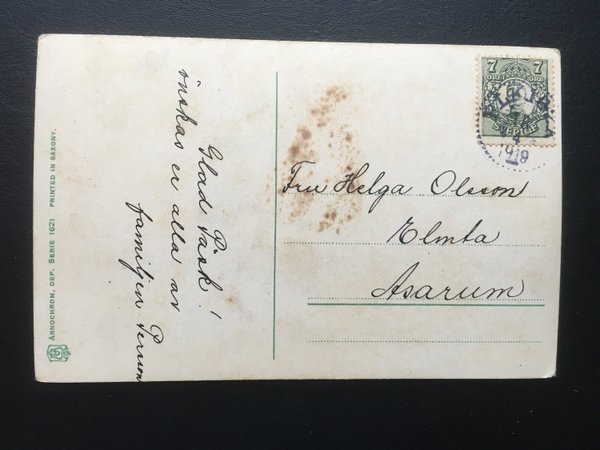 Glad Påsk!
önskas er alla av
familjen
Fru Helga Olsson
Elmta
Asarum
7 7
SVERIGE
1919
ARNOCHROM, DEP. SERIE 1621 PRINTED IN SAXONY.